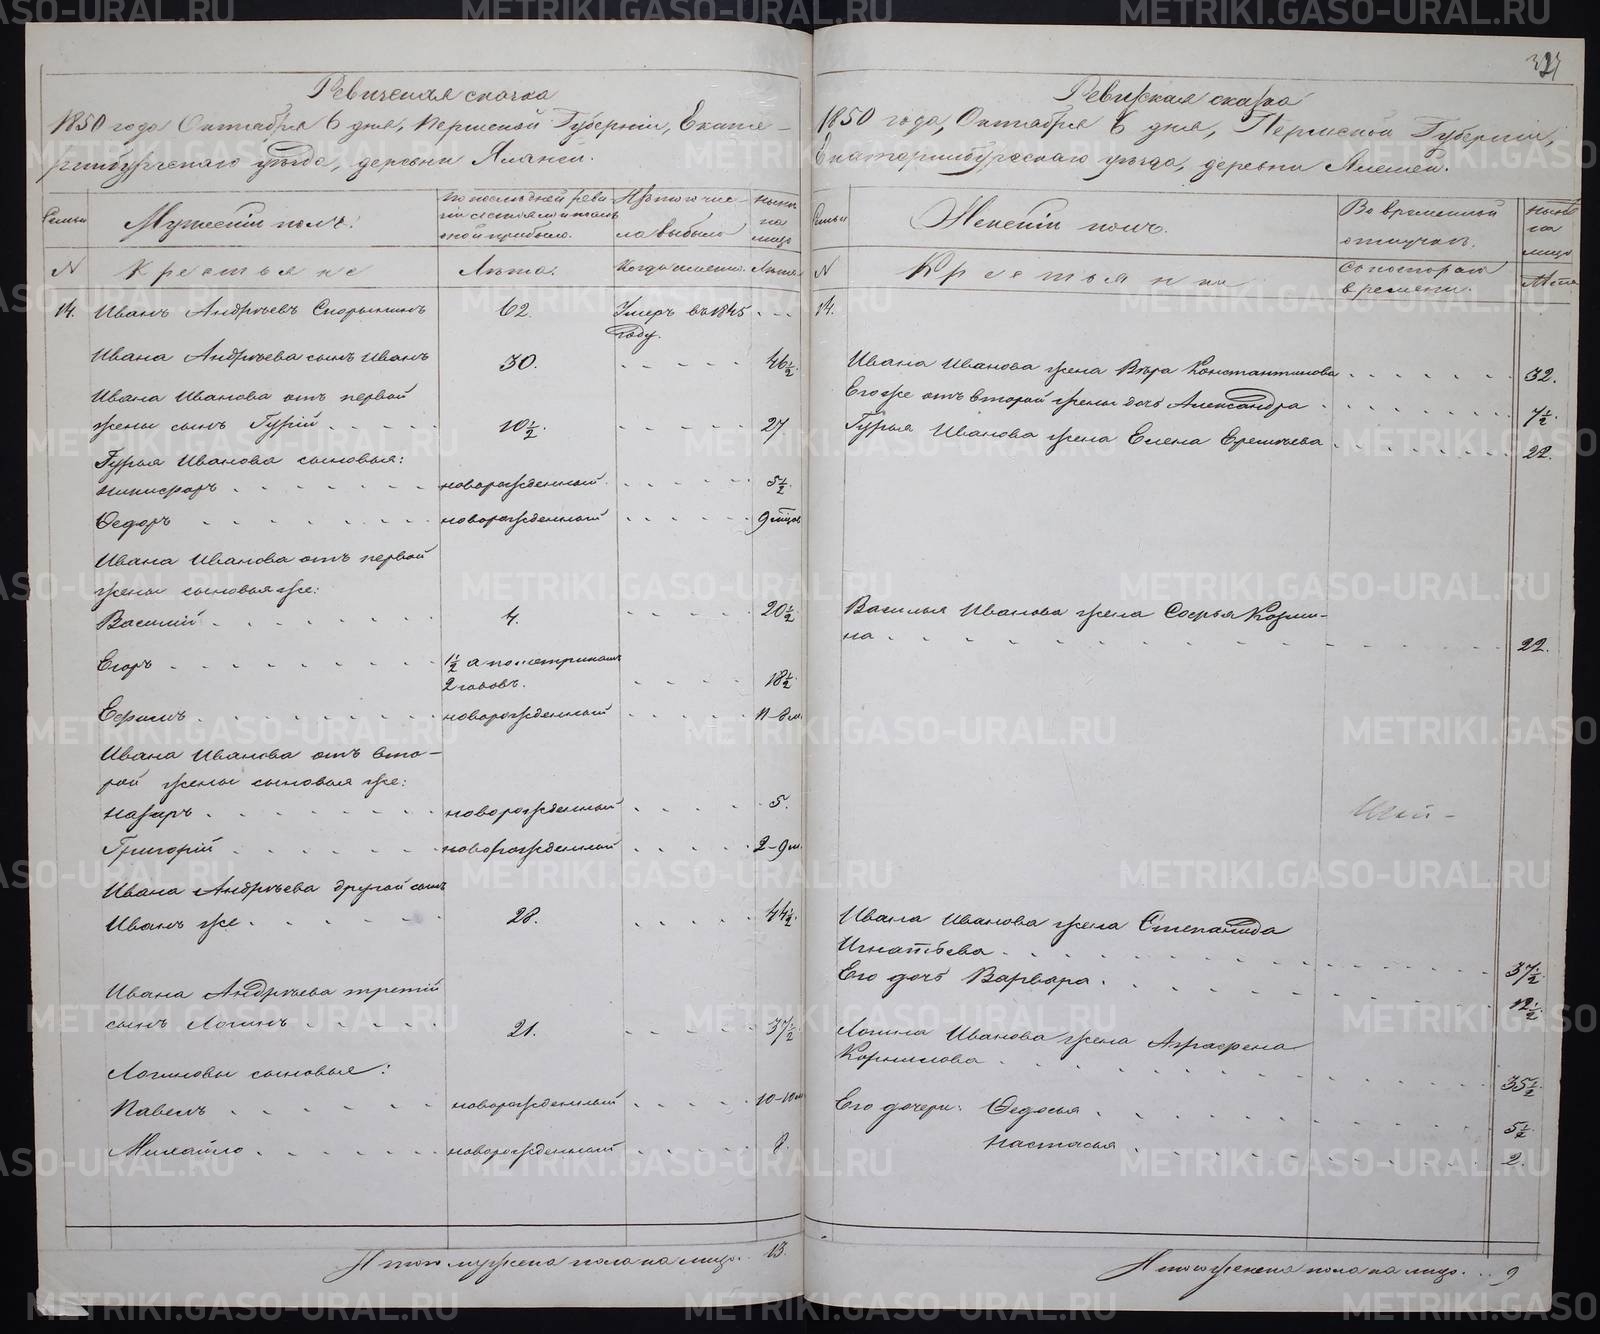 Ревизская сказка
1850 года Октября 6 дня, Пермской Губернiи, Екате-
ринбургскаго уѣзда, деревни
Семьи
Мужескiй полъ.
По последней реви-
зiи состояло и после
оной прибыло.
Изъ того чис-
ла выбыло
Ныне
на
лицо
N
Крестьяне
Лѣта.
Когда именно.
Лѣта
14. Иванъ Андрѣевъ Спорынинъ 62 Умеръ въ 1845 - - -
году.
Ивана Андрѣева сынъ Иванъ 30. - - - - - 46½
Ивана Иванова отъ первой
жены сынъ Гурiй - - - - - 10½. - - - - - 27
Гурья Иванова сыновья:
Никифоръ - - - - - новорожденный - - - - - 5½
Ѳедоръ - - - - - новорожденный - - - - - 9 мѣцов
Ивана Иванова отъ первой
жены сыновья же:
Василiй - - - - - 4. - - - - - 20½
Егоръ - - - - - 1½ а по метрикамъ
2 годовъ. - - - - 18½
Ефимъ - - - - - новорожденный - - - - - 11-8 м
Ивана Иванова отъ вто-
рой жены сыновья же:
Назаръ - - - - - новорожденный - - - - 5.
Григорiй - - - - - новорожденный - - - - - 2-9 м
Ивана Андрѣева другой сынъ
Иванъ же - - - - - 28. - - - - - 44½
Ивана Андрѣева третiй
сынъ Логинъ - - - - - 21. - - - - - 37½
Логиновы сыновья:
Павелъ - - - - - новорожденный - - - - - 10-10 м
Михайло - - - - - новорожденный - - - - - 8.
Итого мужеска пола на лицо. 13.
327
Ревизская сказка
1850 года, Октября 6 дня, Пермской Губернiи,
Екатеринбургскаго уѣзда, деревни
Семьи
Женскiй полъ.
Во временной
отлучке.
Ныне
на
лицо
N
Крестьянки
Съ котораго
времени.
Лѣта
14.
Ивана Иванова жена Вѣра Константинова - - - - - 32.
Его же отъ второй жены дочь Александра - - - - - 7½
Гурья Иванова жена Елена Еремѣева - - - - - 22.
Василья Иванова жена Софья Козми-
на - - - - - 22.
Ивана Иванова жена Степанида
Игнатьева - - - - - 37½
Его дочь Варвара - - - - - 12½
Логина Иванова жена Аграфена
Корнилова - - - - - 35½
Его дочери: Ѳедосья - - - - - 5½
Настасья - - - - - 2.
Итого женска пола на лицо. .. 9
METRIKI.GASO-URAL.RU